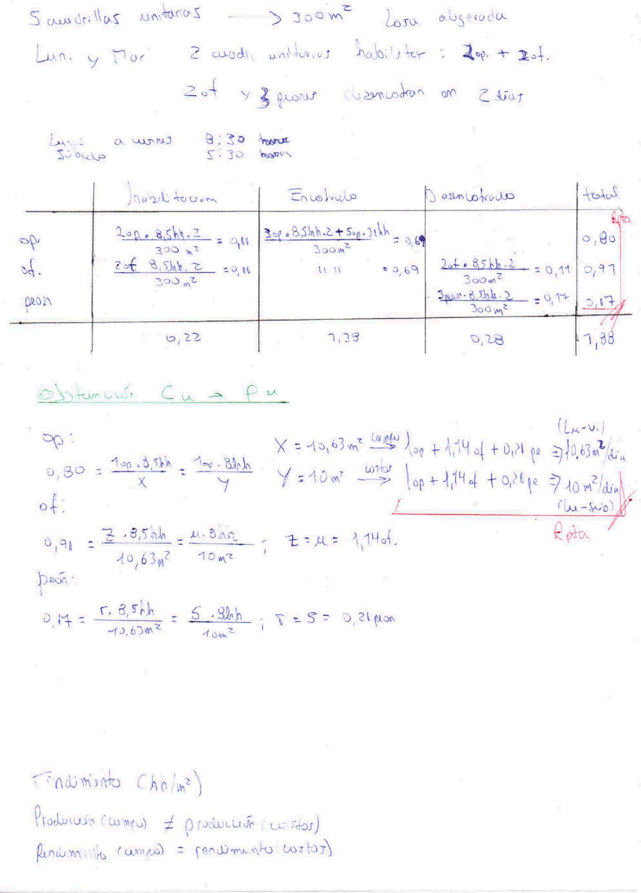 5 cuadrillas unitarias → 300 m² losa aligerada
Lun. y Mar 2 cuadri. unitarias habilitar : 2op. + 2of.
2of y 3 peones desencofran en 2 días
a 8:30
Sábado 5:30
Habilitacion Encofrado Desencofrado total
Rpta
op. 2op. 8,5hh.2 / 300 m² = 0,11 8,5hh.2 + 5op. / 300m² = 0,69 0,80
of. 2of 8,5hh.2 / 300m² = 0,11 " " = 0,69 2of. 8,5hh.2 / 300m² = 0,11 0,91
peon 8,5hh.2 / 300m² = 0,17 0,17
0,22 1,38 0,28 1,88
Obtención Cu → Pu
op: X = 10,63m² campo → 1op + 1,14 of + 0,21 pe ⇒ 10,63m²/día (Lu-Vi)
0,80 = 1op. 8,5hh / X = 1op. 8hh / Y Y = 10m² costos → 1op + 1,14of + 0,21 pe ⇒ 10m²/día
of: Rpta
0,91 = Z . 8,5hh / 10,63m² = u. 8hh / 10m² ; Z = u = 1,14of.
peón:
0,17 = r. 8,5hh / 10,63m² = S. 8hh / 10m² ; r = S = 0,21 peon
rendimiento (hh/m²)
Producción (campo) ≠ producción (costos)
Rendimiento (campo) = rendimiento (costos)